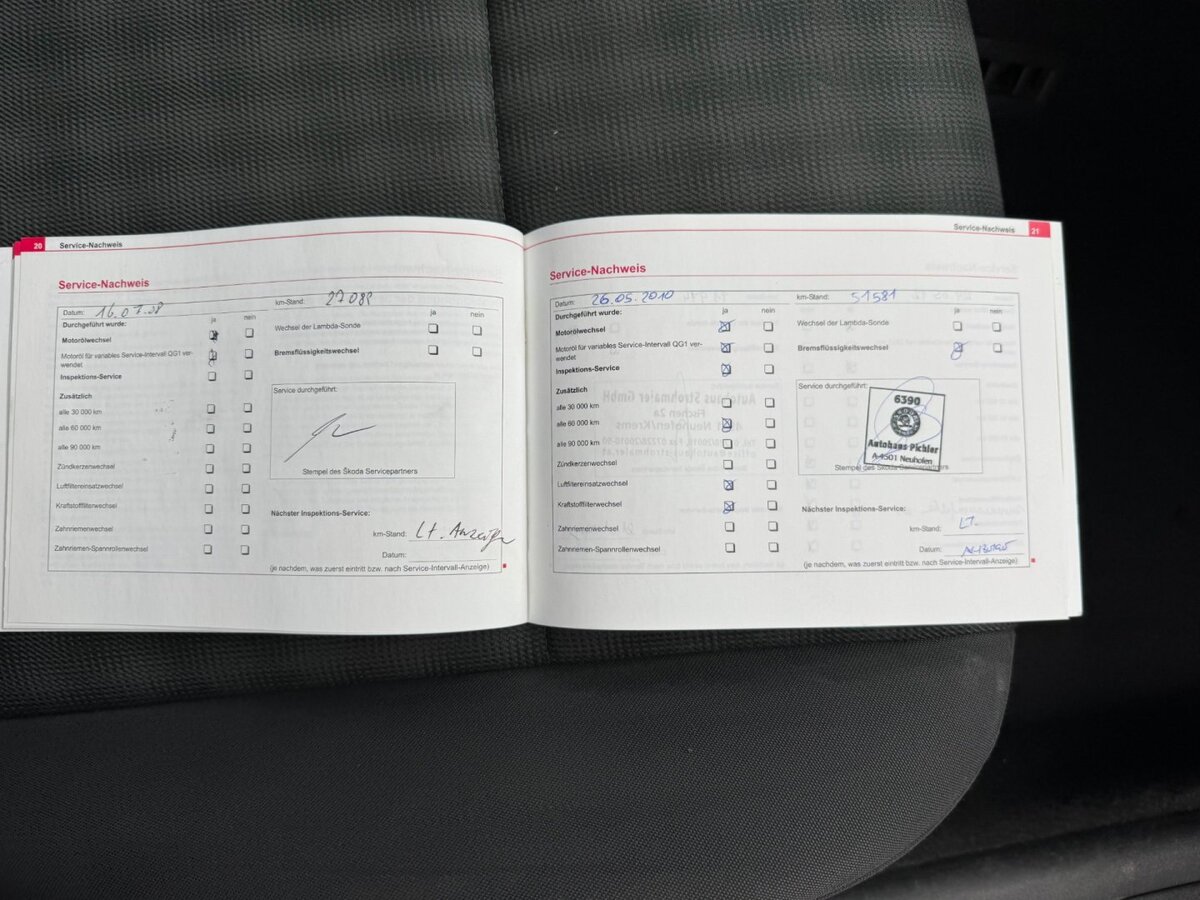 20 Service-Nachweis
Service-Nachweis
Datum: 16.07.08 km-Stand:
Durchgeführt wurde: ja nein
Motorölwechsel
Motoröl für variables Service-Intervall QG1 ver-
wendet
Inspektions-Service
Zusätzlich
alle 30 000 km
alle 60 000 km
alle 90 000 km
Zündkerzenwechsel
Luftfiltereinsatzwechsel
Kraftstofffilterwechsel
Zahnriemenwechsel
Zahnriemen-Spannrollenwechsel
ja nein
Wechsel der Lambda-Sonde
Bremsflüssigkeitswechsel
Service durchgeführt:
Stempel des Škoda Servicepartners
Nächster Inspektions-Service:
km-Stand: Lt. Anzeige
Datum:
(je nachdem, was zuerst eintritt bzw. nach Service-Intervall-Anzeige)
Service-Nachweis 21
Service-Nachweis
Datum: 26.05.2010 km-Stand: 51581
Durchgeführt wurde: ja nein
Motorölwechsel
Motoröl für variables Service-Intervall QG1 ver-
wendet
Inspektions-Service
Zusätzlich
alle 30 000 km
alle 60 000 km
alle 90 000 km
Zündkerzenwechsel
Luftfiltereinsatzwechsel
Kraftstofffilterwechsel
Zahnriemenwechsel
Zahnriemen-Spannrollenwechsel
ja nein
Wechsel der Lambda-Sonde
Bremsflüssigkeitswechsel
Service durchgeführt:
6390
Autohaus Pichler
A-4501 Neuhofen
Stempel des Škoda Servicepartners
Nächster Inspektions-Service:
km-Stand: LT.
Datum:
(je nachdem, was zuerst eintritt bzw. nach Service-Intervall-Anzeige)